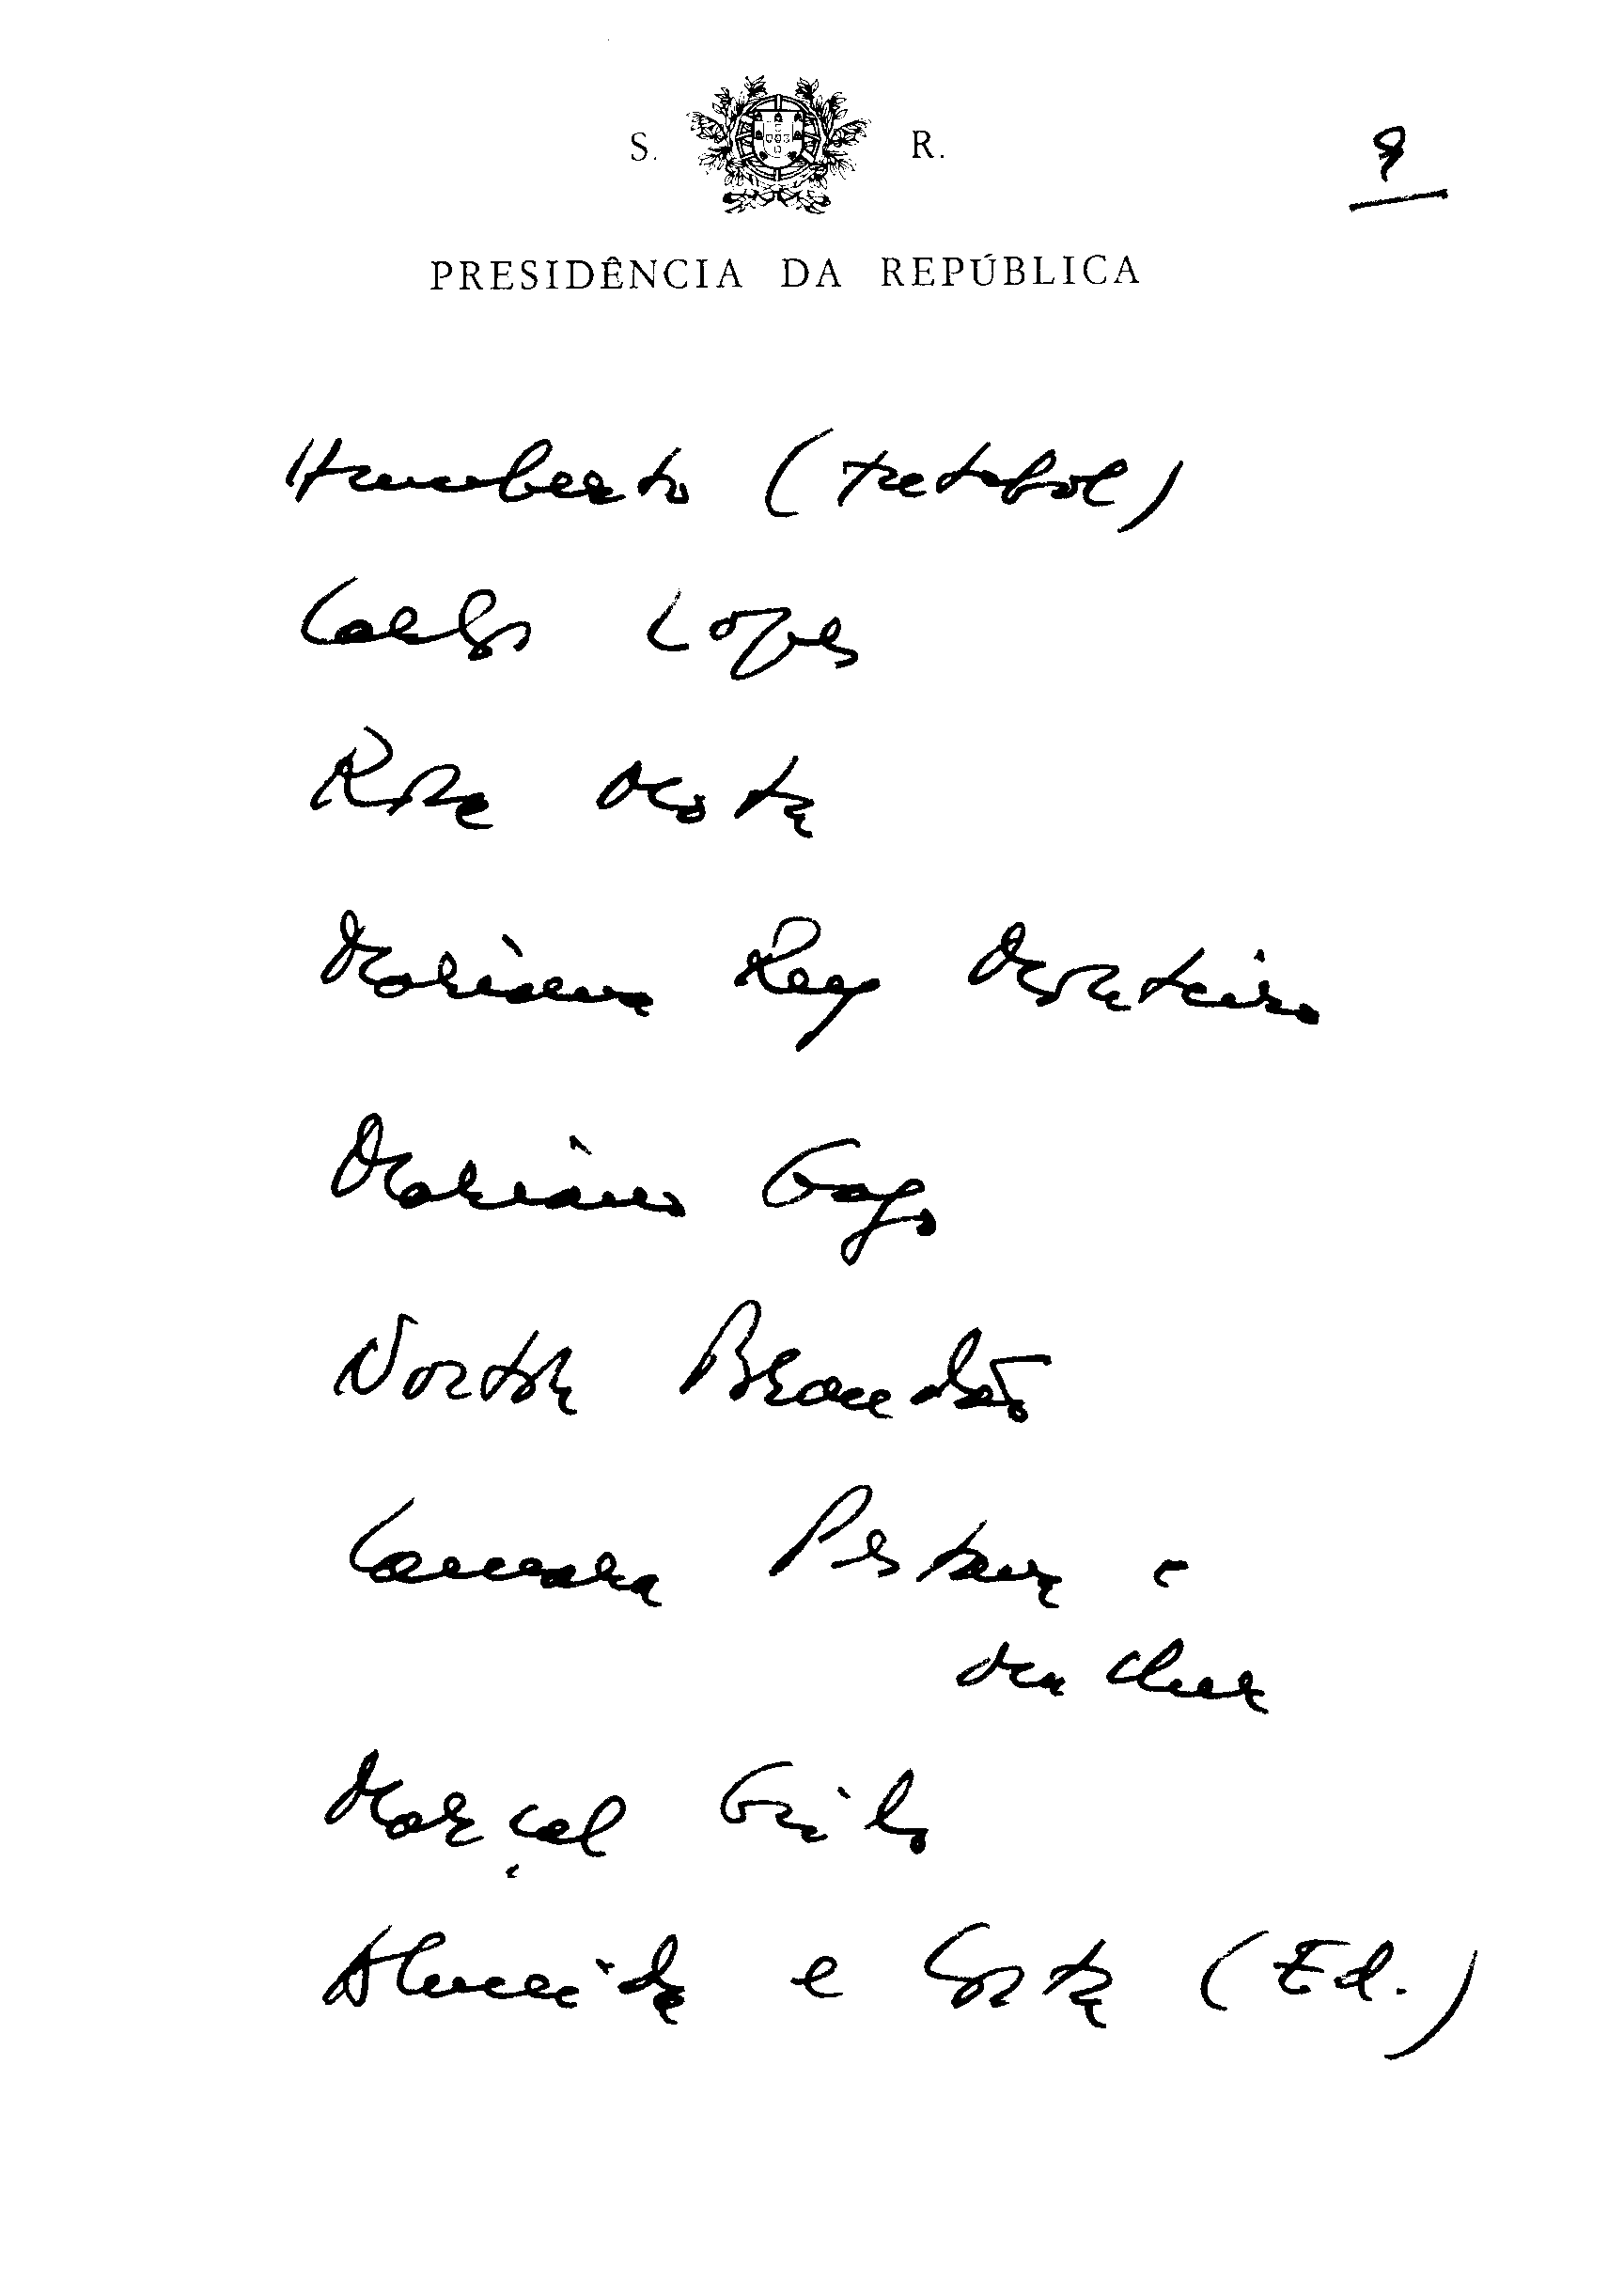 S. R.
PRESIDÊNCIA DA REPÚBLICA
Humberto (futebol)
Carlos Lopes
Rosa Mota
Mariana Rey Monteiro
Mariano Gago
North Brandão
Camara Pestana e
mulher
Marçal Grilo
Almeida e Costa (Ed.)